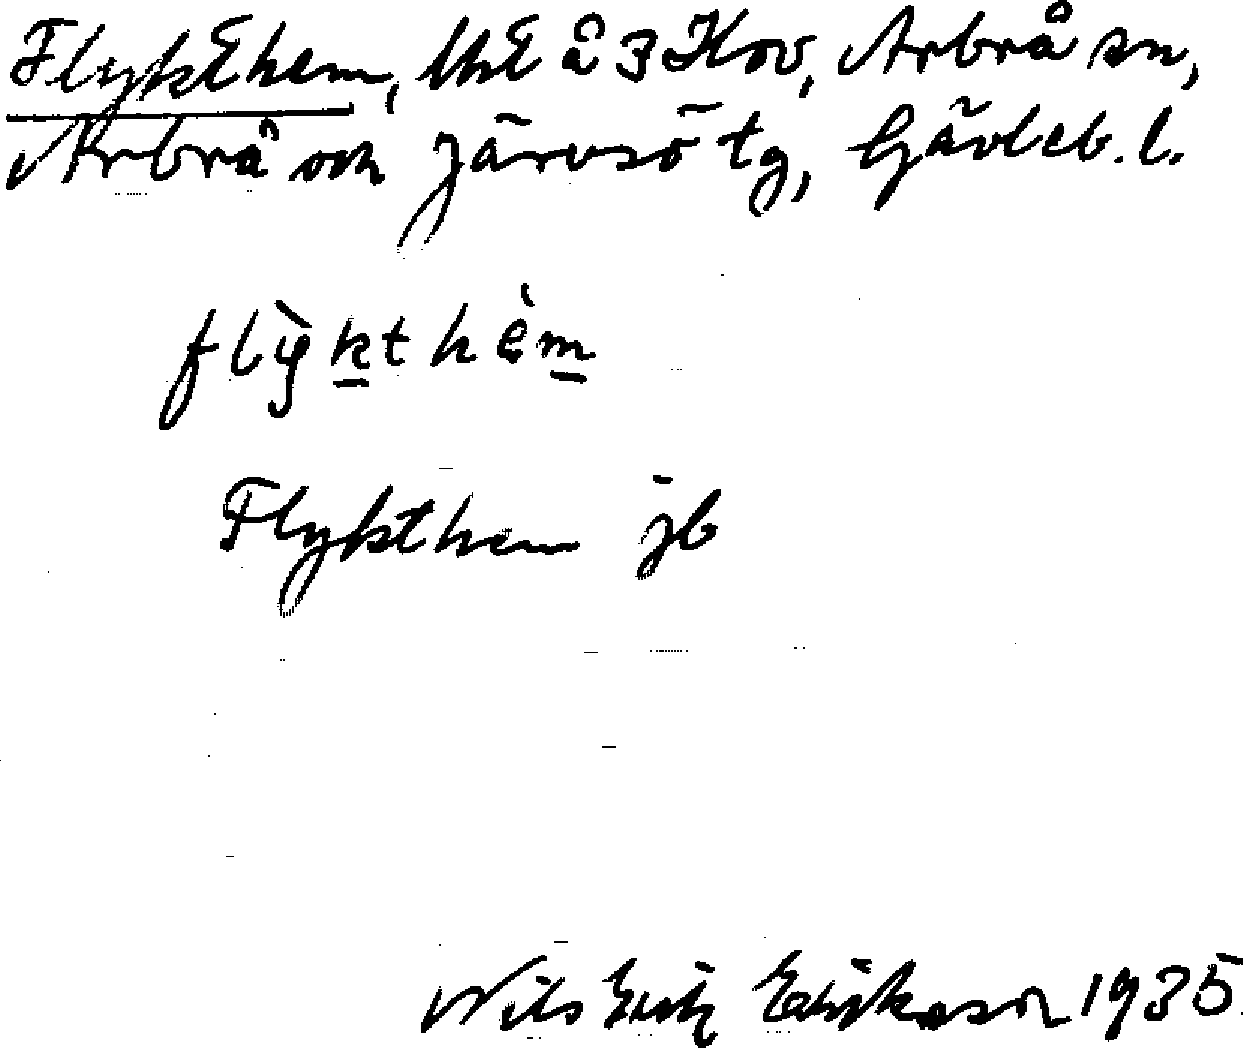 Flykthem, lht å 3 Kov, Arbrå sn,
Arbrå och Järvsö tg, Gävleb. l.
flỳkthèm
Flykthem jb
Nils Erik Eriksson 1935